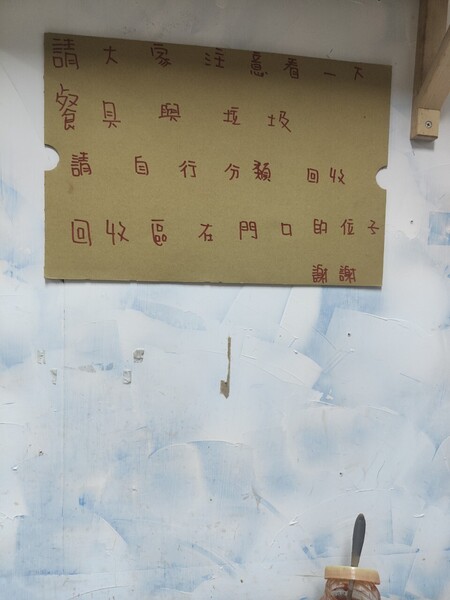 請大家注意看一下
餐具與垃圾
請自行分類 回收
回收區右門口的位子
謝謝